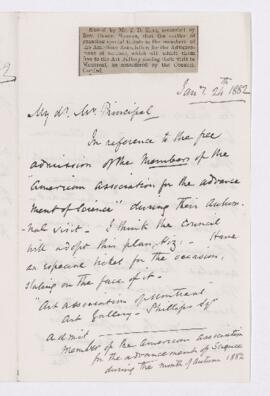 Moved by Mr. J. D. , seconded by
Rev. Canon Norman, that the matter of
to the members of
the American Association for the Advancement
of Science, which will admit them
free to the Art Gallery during their visit to
Montreal, be considered by the Council.
Carried.
Jany 24th 1882
My dr. Mr. Principal
In reference to the free
admission of the Members of the
"American association for the advance
ment of Science" during their Autum-
nal visit - I think the Council
will adopt this plan, viz: - Have
an especial ticket for the occasion,
stating on the face of it -
"Art association of Montreal
Art Gallery - Phillips Sqr
admit
Member of the American Association
for the advancement of Science
during the month of Autumn 1882